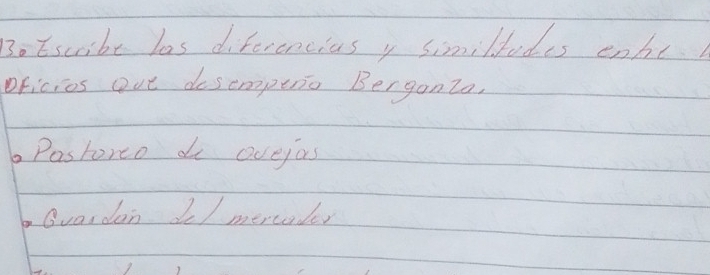 13. Escribe las diferencias y similitudes entre
oficios que desempeño Berganza.
• Pastoreo de ovejas
• Guardan del mercader